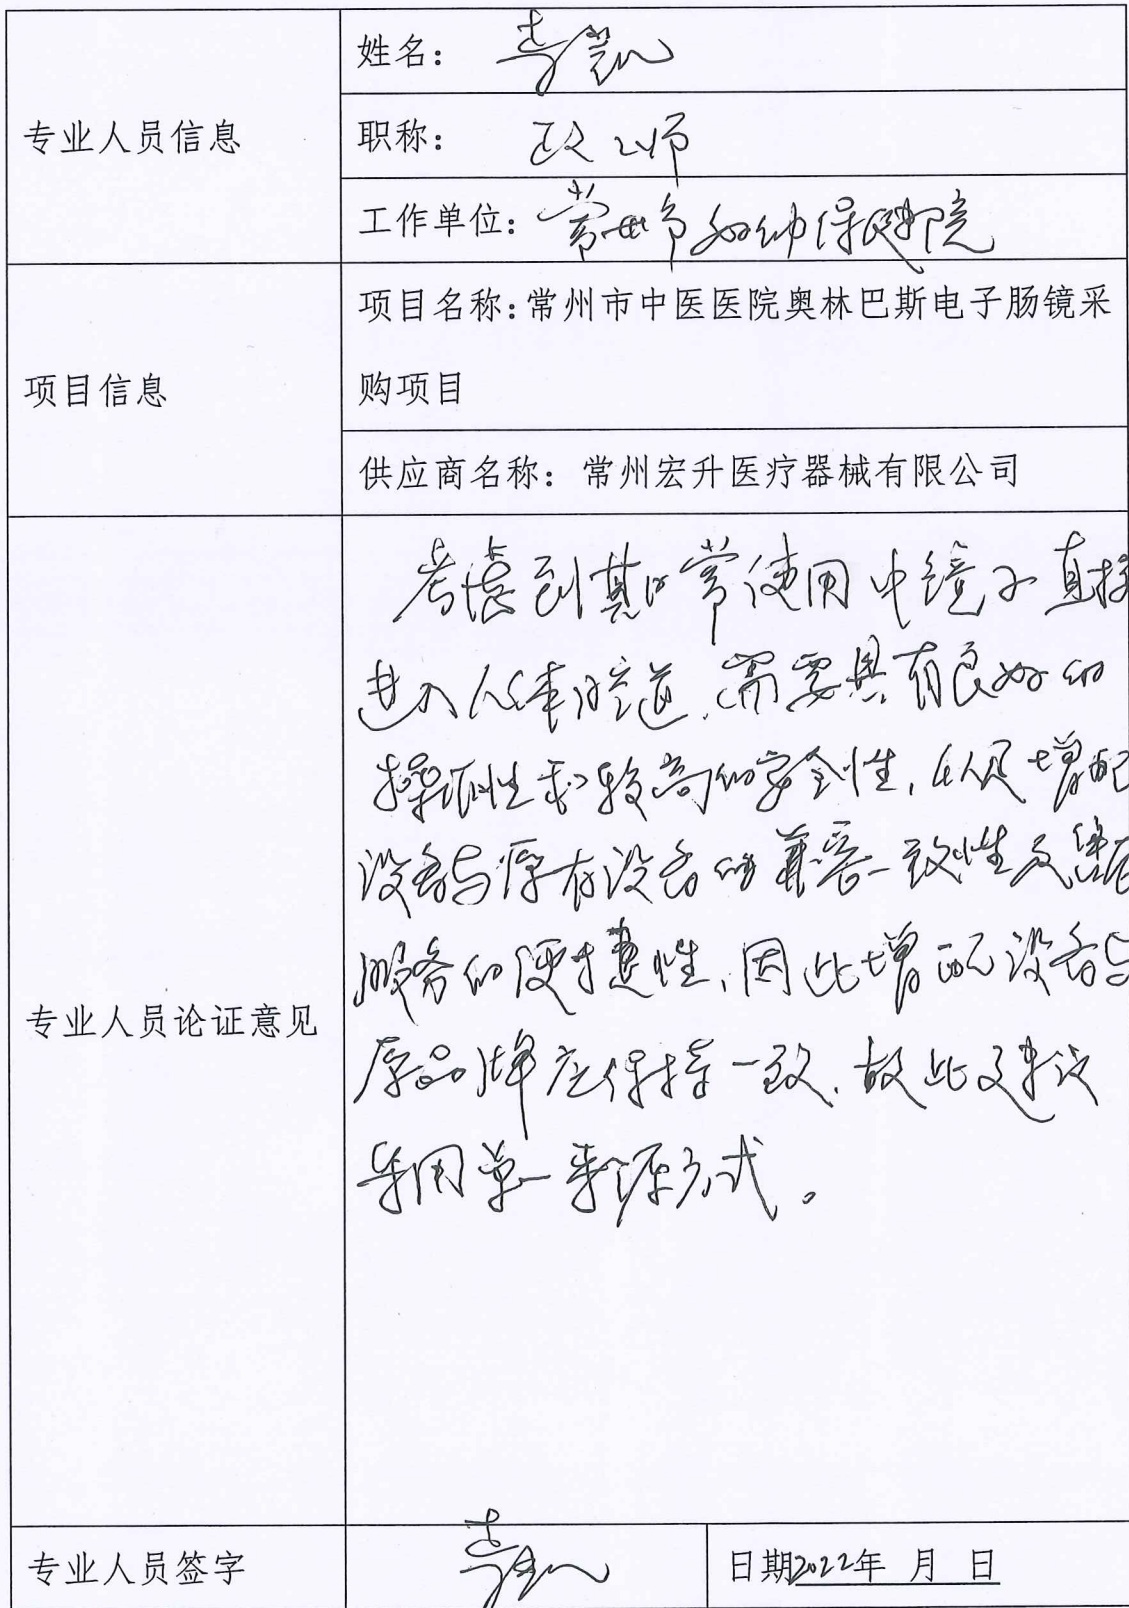 专业人员信息
姓名：李凯
职称：政工师
工作单位：常州市妇幼保健院
项目信息
项目名称：常州市中医医院奥林巴斯电子肠镜采
购项目
供应商名称：常州宏升医疗器械有限公司
专业人员论证意见
考虑到其日常使用中镜子直接
进入人体腔道，需要具有良好的
操作性和较高的安全性，增配
设备与原有设备的兼容一致性及售后
服务的便捷性，因此增配设备与
原品牌应保持一致，故此建议
采用单一来源方式。
专业人员签字
李凯
日期2022年 月 日